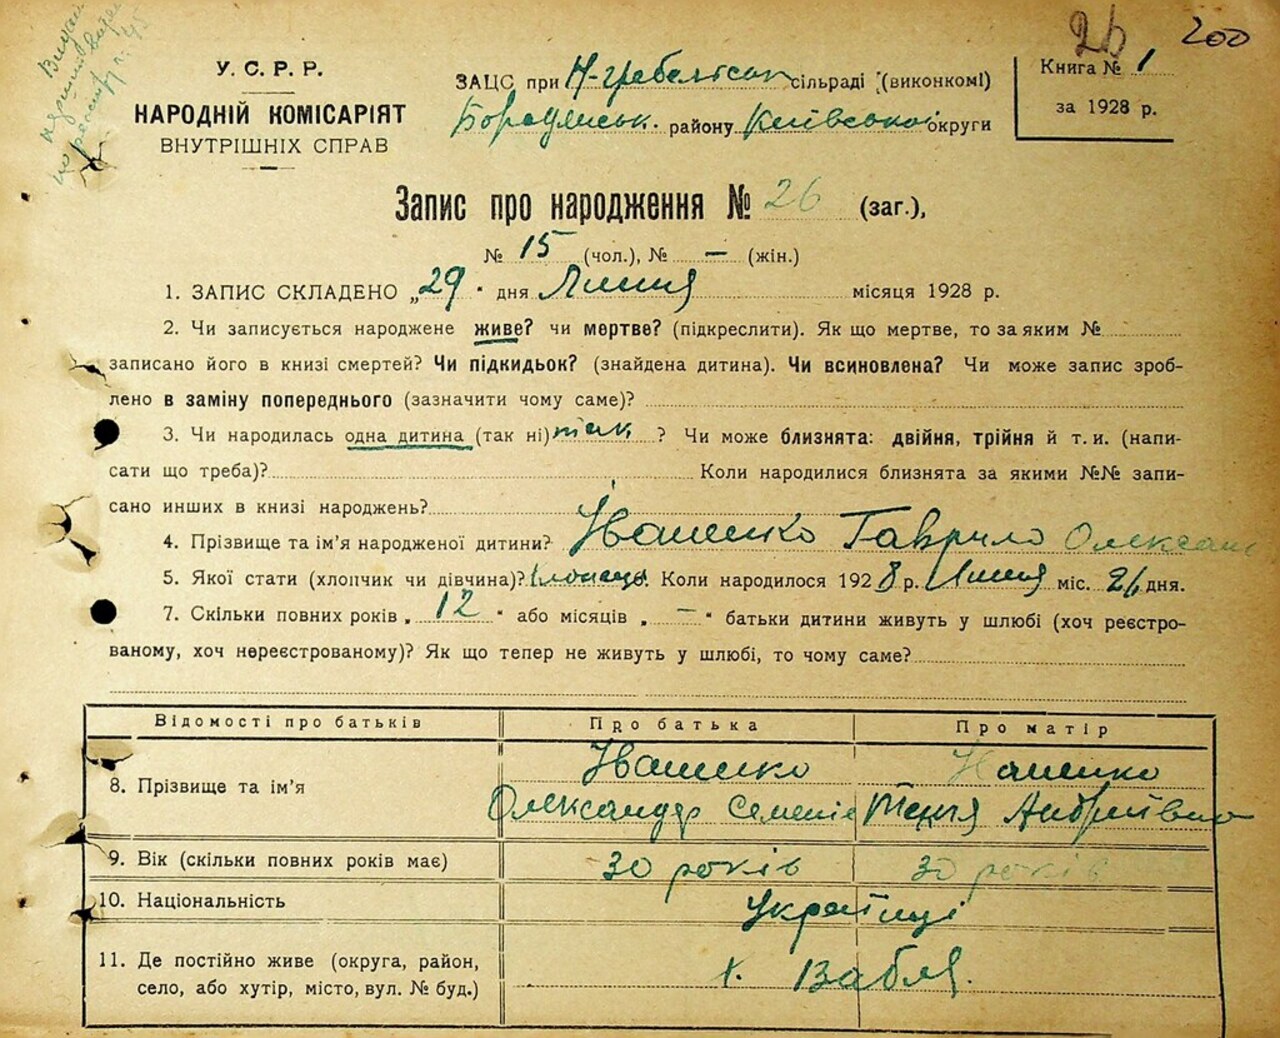 26 200
У. С. Р. Р.
НАРОДНІЙ КОМІСАРІЯТ
ВНУТРІШНІХ СПРАВ
ЗАЦС при Н-Гребельськ сільраді (виконкомі)
Бородянськ. району Київської округи
Книга № 1
за 1928 р.
Запис про народження № 26 (заг.),
№ 15 (чол.), № — (жін.)
1. ЗАПИС СКЛАДЕНО „29" дня Липня місяця 1928 р.
2. Чи записується народжене живе? чи мертве? (підкреслити). Як що мертве, то за яким №
записано його в книзі смертей? Чи підкидьок? (знайдена дитина). Чи всиновлена? Чи може запис зроб-
лено в заміну попереднього (зазначити чому саме)?
3. Чи народилась одна дитина (так ні) так ? Чи може близнята: двійня, трійня й т. и. (напи-
сати що треба)? Коли народилися близнята за якими №№ запи-
сано инших в книзі народжень?
4. Прізвище та ім'я народженої дитини? Іваненко Гаврило Олексан
5. Якої стати (хлопчик чи дівчина)? Хлопець. Коли народилося 1928 р. Липня міс. 26 дня.
7. Скільки повних років „12" або місяців „—" батьки дитини живуть у шлюбі (хоч реєстро-
ваному, хоч нереєстрованому)? Як що тепер не живуть у шлюбі, то чому саме?
Відомості про батьків Про батька Про матір
8. Прізвище та ім'я Іваненко Іваненко
Олександер Семенів Андріївна
9. Вік (скільки повних років має) 30 років 30 років
10. Національність Українці
11. Де постійно живе (округа, район,
село, або хутір, місто, вул. № буд.) х. Вабля.